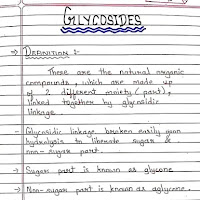 GLYCOSIDES
→ DEFINITION :-
These are the natural organic
compounds, which are made up
of 2 different moiety (part),
linked together by glycosidic
linkage
- Glycosidic linkage broken easily upon
hydrolysis to liberate sugar &
non-sugar part.
→ Sugar part is known as glycone
→ Non-sugar part is known as aglycone.